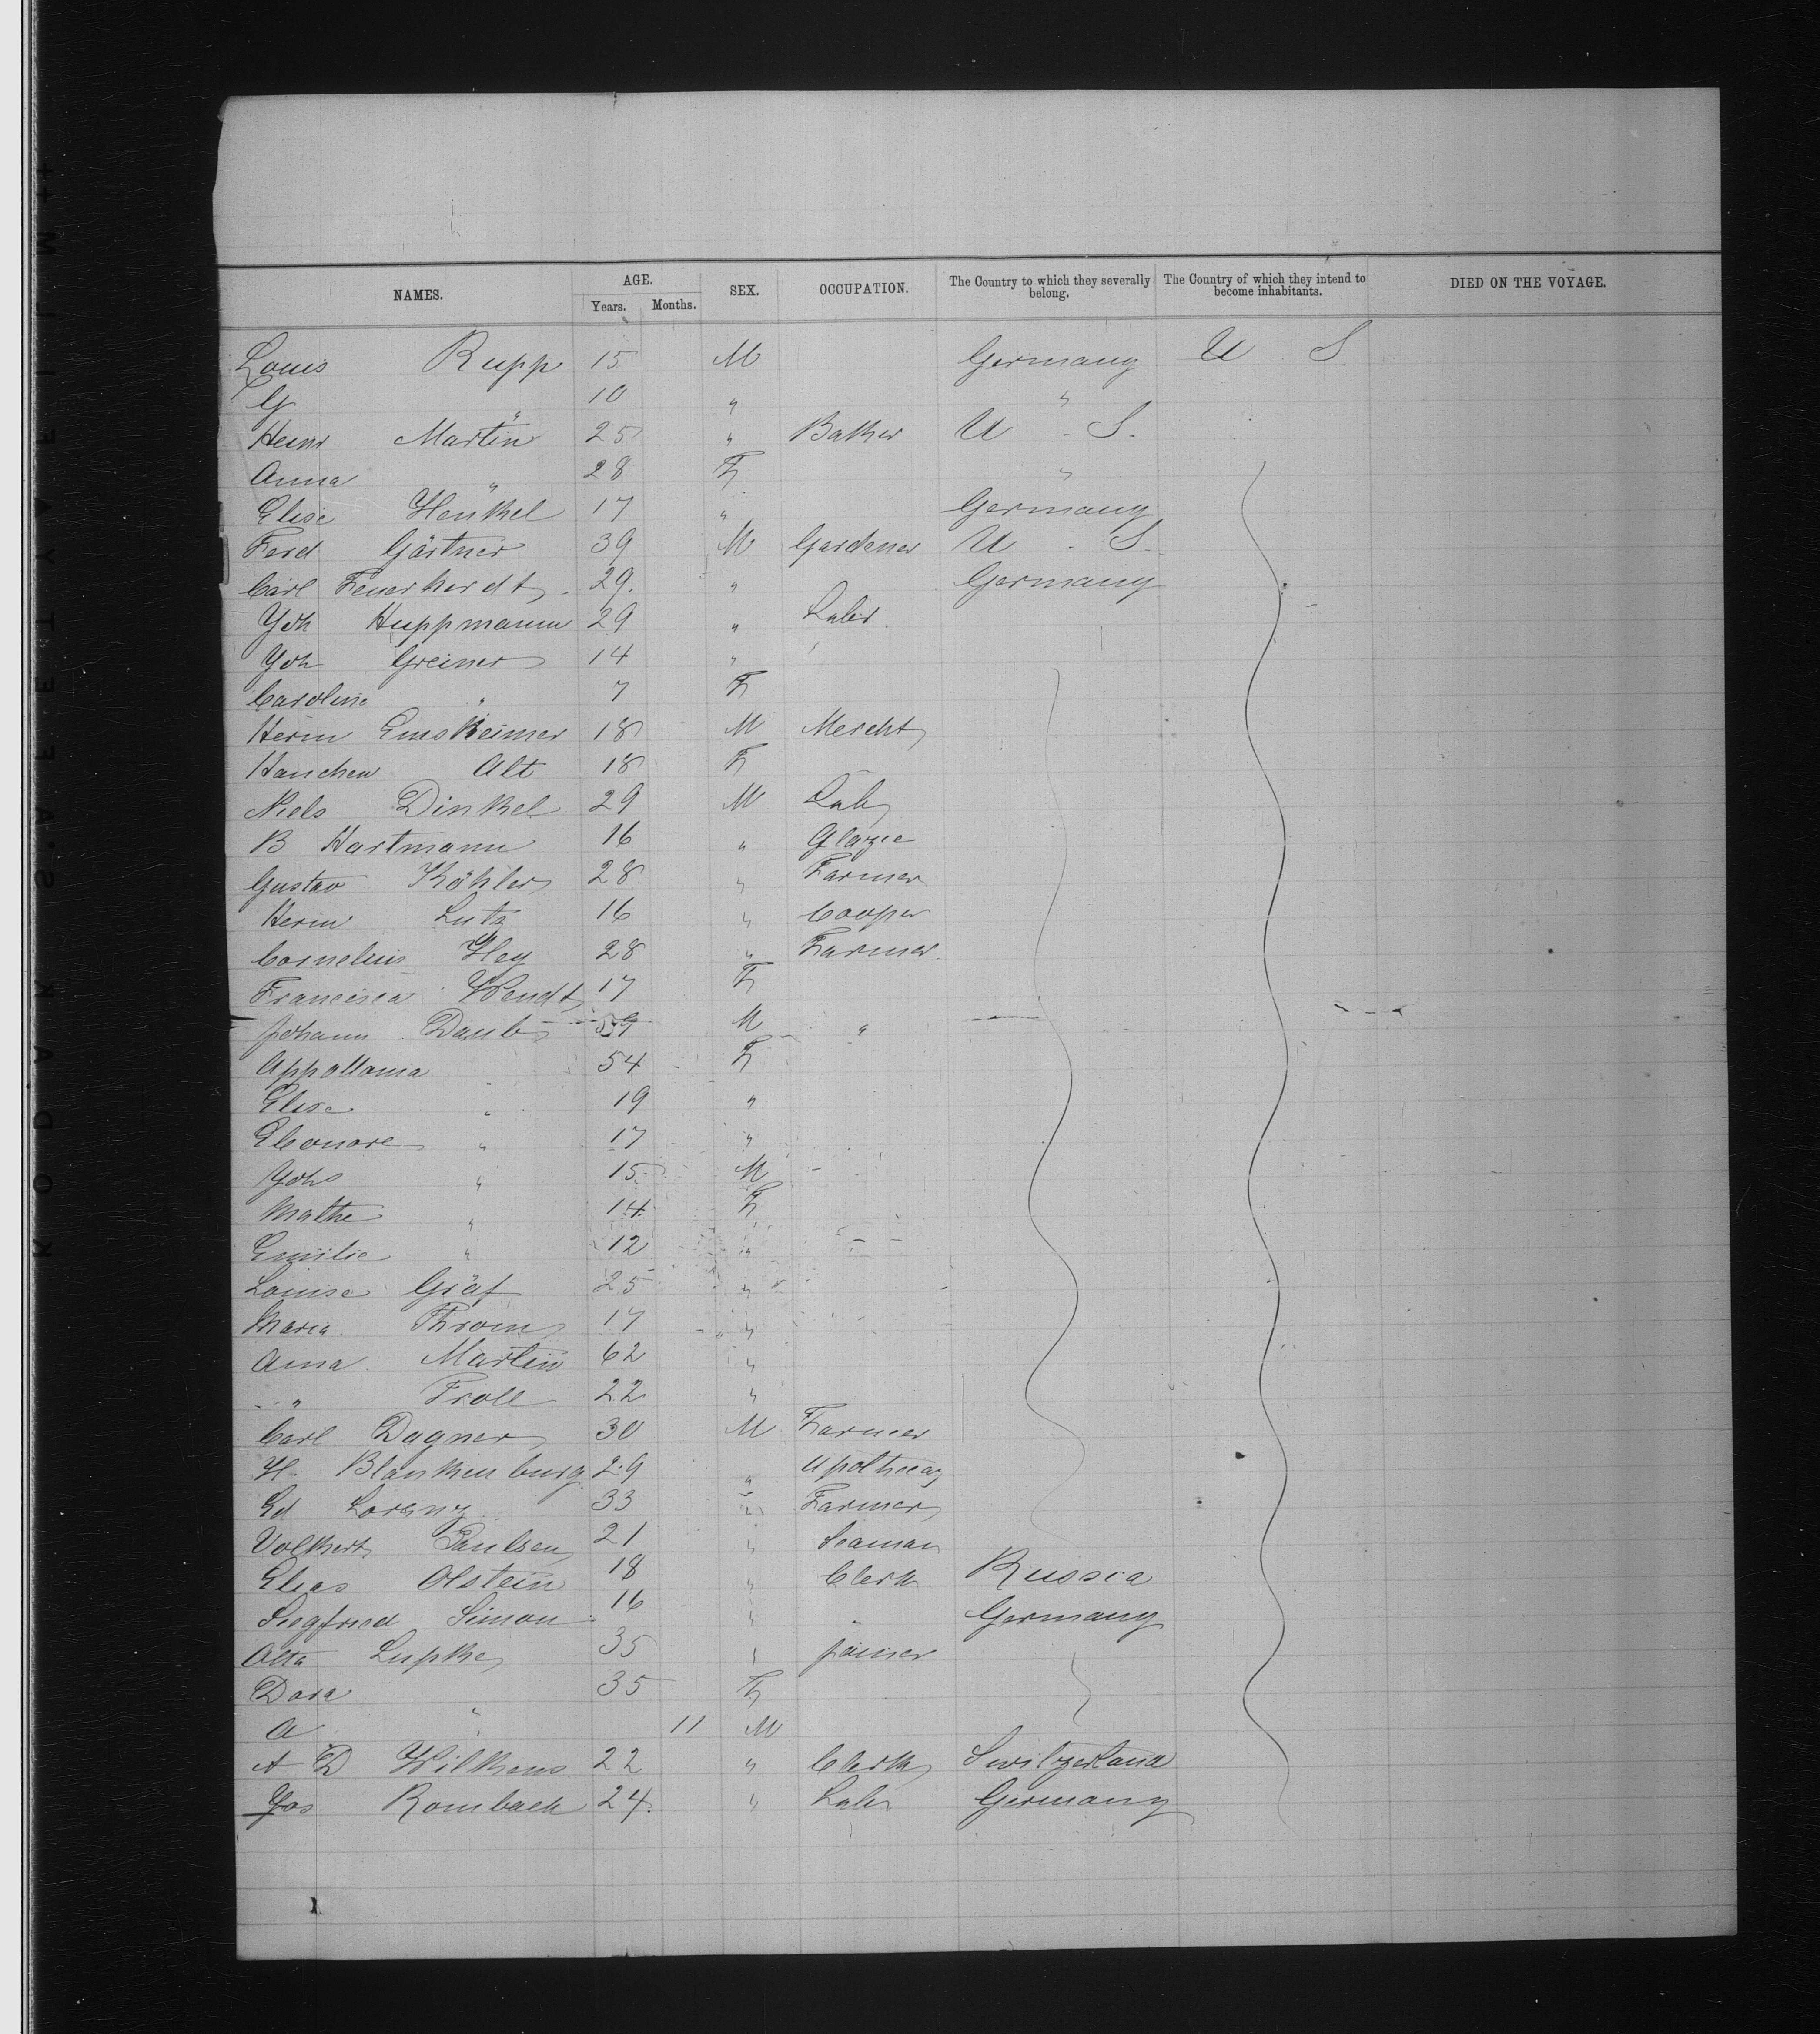 NAMES. AGE. SEX. OCCUPATION. The Country to which they severally belong. The Country of which they intend to become inhabitants. DIED ON THE VOYAGE.
Years. Months.
Louis Rupp 15 M Germany U S.
G " 10 " "
Heinr Martin 25 " Baker U . S.
Anna " 28 F "
Elise Henkel 17 " Germany
Ferd Gärtner 39 M Gardener U . S.
Carl Feuerherdt 29. " Germany
Joh Huppmann 29 " Labr.
Joh Greiner 14 "
Caroline " 7 F
Herm Emsheimer 18 M Mercht
Hanchen Alt 18 F
Niels Dinkel 29 M Lab
B Hartmann 16 " Glazie
Gustav Köhler 28 " Farmer
Herm Lutz 16 " Cooper
Cornelius Hey 28 " Farmer.
Francisca Wendt 17 F
Johann Daub 59 M "
Appollonia 54 F
Elise " 19 "
Eleonore " 17 "
Johs " 15 M
Mathe " 14 F
Emilie " 12 "
Louise Gräf 25 "
Maria Throm 17 "
Anna Martin 62 "
" Troll 22 "
Carl Dagner 30 M Farmer
H. Blankenburg 29 " Apothecay
Ed Lorenz 33 " Farmer
Volkert Paulsen 21 " Seaman
Elias Olstein 18 " Clerk Russia
Siegfried Simon 16 " " Germany
Otto Lupke 35 " joiner
Dora 35 F
A " 11 M
A D Wilkens 22 " Clerk Switzerland
Jos Rombach 24. " Labr Germany